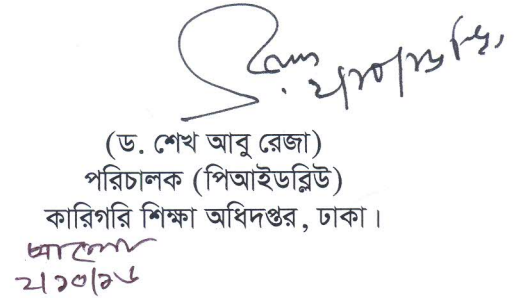 ২/১০/১৬ খ্রি,
(ড. শেখ আবু রেজা)
পরিচালক (পিআইডব্লিউ)
কারিগরি শিক্ষা অধিদপ্তর, ঢাকা।
২/১০/১৬